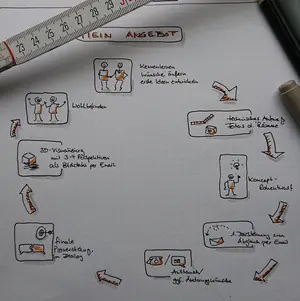 MEIN ANGEBOT
Kennenlernen
Wünsche äußern
erste Ideen entwickeln
technisches Aufmaß
Fotos d. Räume
Konzept-
Rohentwurf
Darstellung zum
Abgleich per Email
Austausch/
ggf. Änderungswünsche
finale
Planerstellung
im Dialog
3D-Visualisierung
mit 3-4 Perspektiven
als Bilddatei per Email
Wohlbefinden
23 24 25 26 27 28 29